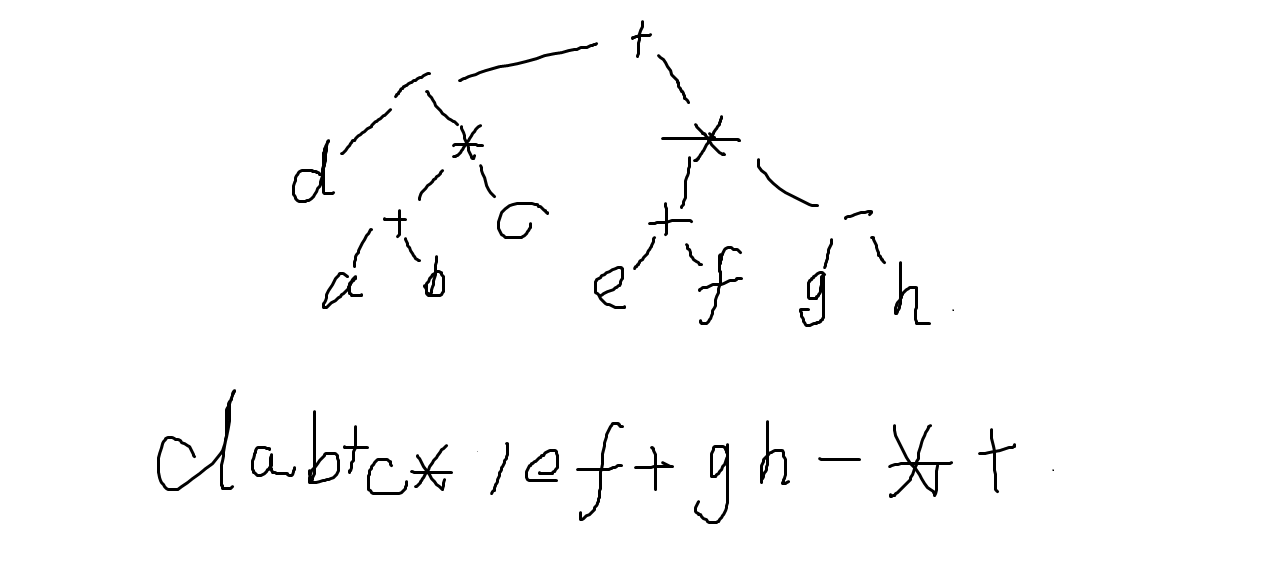 +
/
d * *
+ c + -
a b e f g h
dab+c* /ef+gh-*+